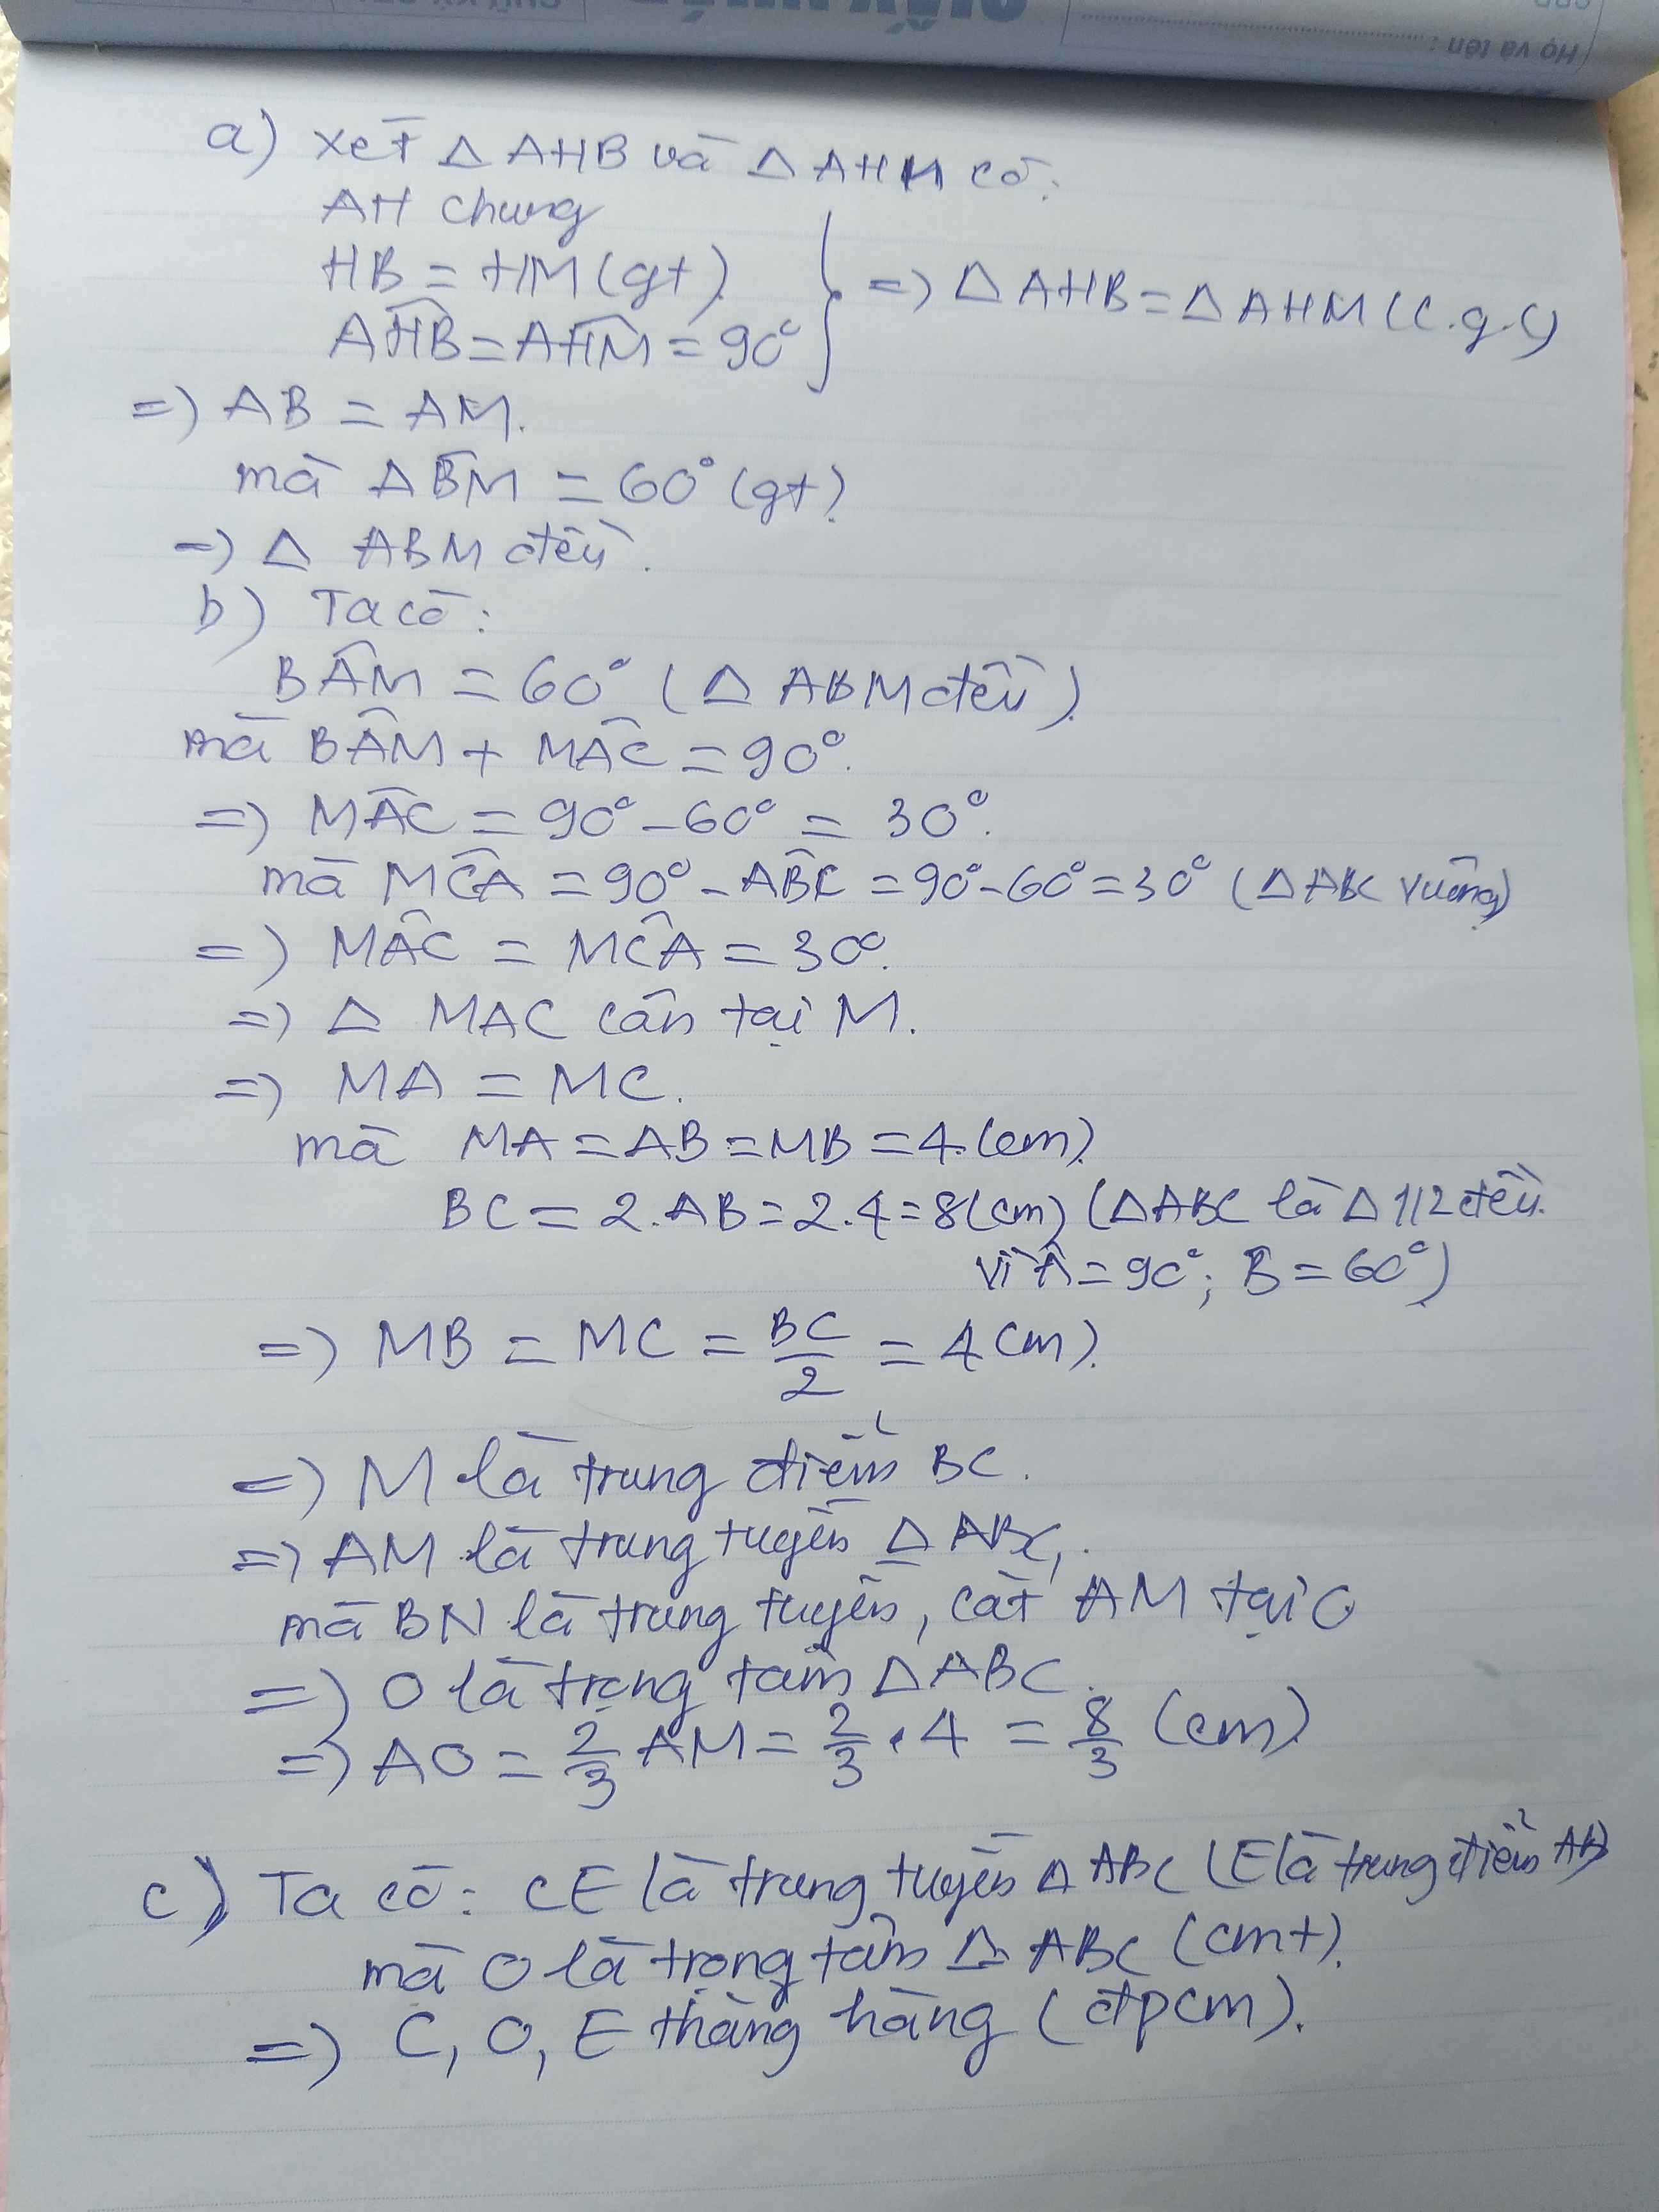 Họ và tên :
a) Xét Δ AHB và Δ AHM có:
AH chung
HB = HM (gt)
AĤB = AĤM = 90°
} => Δ AHB = Δ AHM (c.g.c)
=> AB = AM.
mà AB̂M = 60° (gt)
=> Δ ABM đều.
b) Ta có:
BÂM = 60° (Δ ABM đều)
mà BÂM + MÂC = 90°.
=> MÂC = 90° - 60° = 30°.
mà MĈA = 90° - AB̂C = 90° - 60° = 30° (Δ ABC vuông)
=> MÂC = MĈA = 30°.
=> Δ MAC cân tại M.
=> MA = MC.
mà MA = AB = MB = 4 (cm)
BC = 2.AB = 2.4 = 8 (cm) (ΔABC là Δ 1/2 đều
vì Â = 90°; B̂ = 60°)
=> MB = MC = BC/2 = 4 cm).
=> M là trung điểm BC.
=> AM là trung tuyến Δ ABC,
mà BN là trung tuyến, cắt AM tại O
=> O là trọng tâm ΔABC.
=> AO = 2/3 AM = 2/3 . 4 = 8/3 (cm)
c) Ta có: CE là trung tuyến Δ ABC (E là trung điểm AB)
mà O là trọng tâm Δ ABC (cmt).
=> C, O, E thẳng hàng (đpcm).